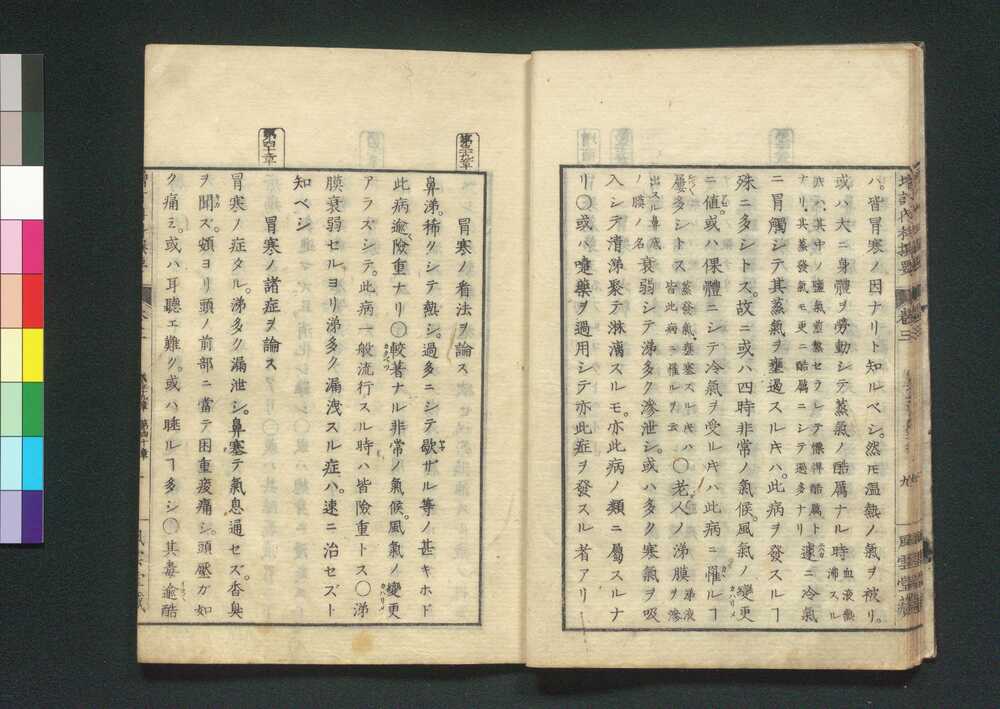 ハ。皆冒寒ノ因ナリト知ルベシ。然𪜈温熱ノ氣ヲ被リ。
或ハ大ニ身體ヲ勞動シテ蒸氣ノ酷厲ナル時
ニ冒觸シテ其蒸氣ヲ壅遏スルキハ。此病ヲ發スルヿ
殊ニ多シトス。故ニ或ハ四時非常ノ氣候。風氣ノ變更
ニ値。或ハ倮體ニシテ冷氣ヲ受ルキハ此病ニ罹ルヿ
屢多シトス
皆此病ニ罹ルヲ云
〇老人ノ涕膜
ノ膜ノ名
衰弱シテ涕多ク滲泄シ。或ハ多ク寒氣ヲ吸
入シテ清涕聚テ淋漓スルモ。亦此病ノ類ニ屬スルナ
リ〇或ハ嚏藥ヲ過用シテ亦此症ヲ發スル者アリ
第三十九章
冒寒ノ看法ヲ論ス
鼻涕。稀クシテ熱シ。過多ニシテ歇ザル等ノ甚キホド
此病逾險重ナリ〇較著ナル非常ノ氣候。風氣ノ變更
アラズシテ。此病一般流行スル時ハ皆險重トス〇涕
膜衰弱セルヨリ涕多ク漏洩スル症ハ。速ニ治セズト
知ベシ
第四十章
冒寒ノ諸症ヲ論ス
冒寒ノ症タル。涕多ク漏泄シ。鼻塞テ氣息通セズ。香臭
ヲ聞ス。頰ヨリ頭ノ前部ニ當テ困重痠痛シ。頭壓カ如
ク痛ミ。或ハ耳聽エ難ク。或ハ睡ルヿ多シ〇其毒逾酷